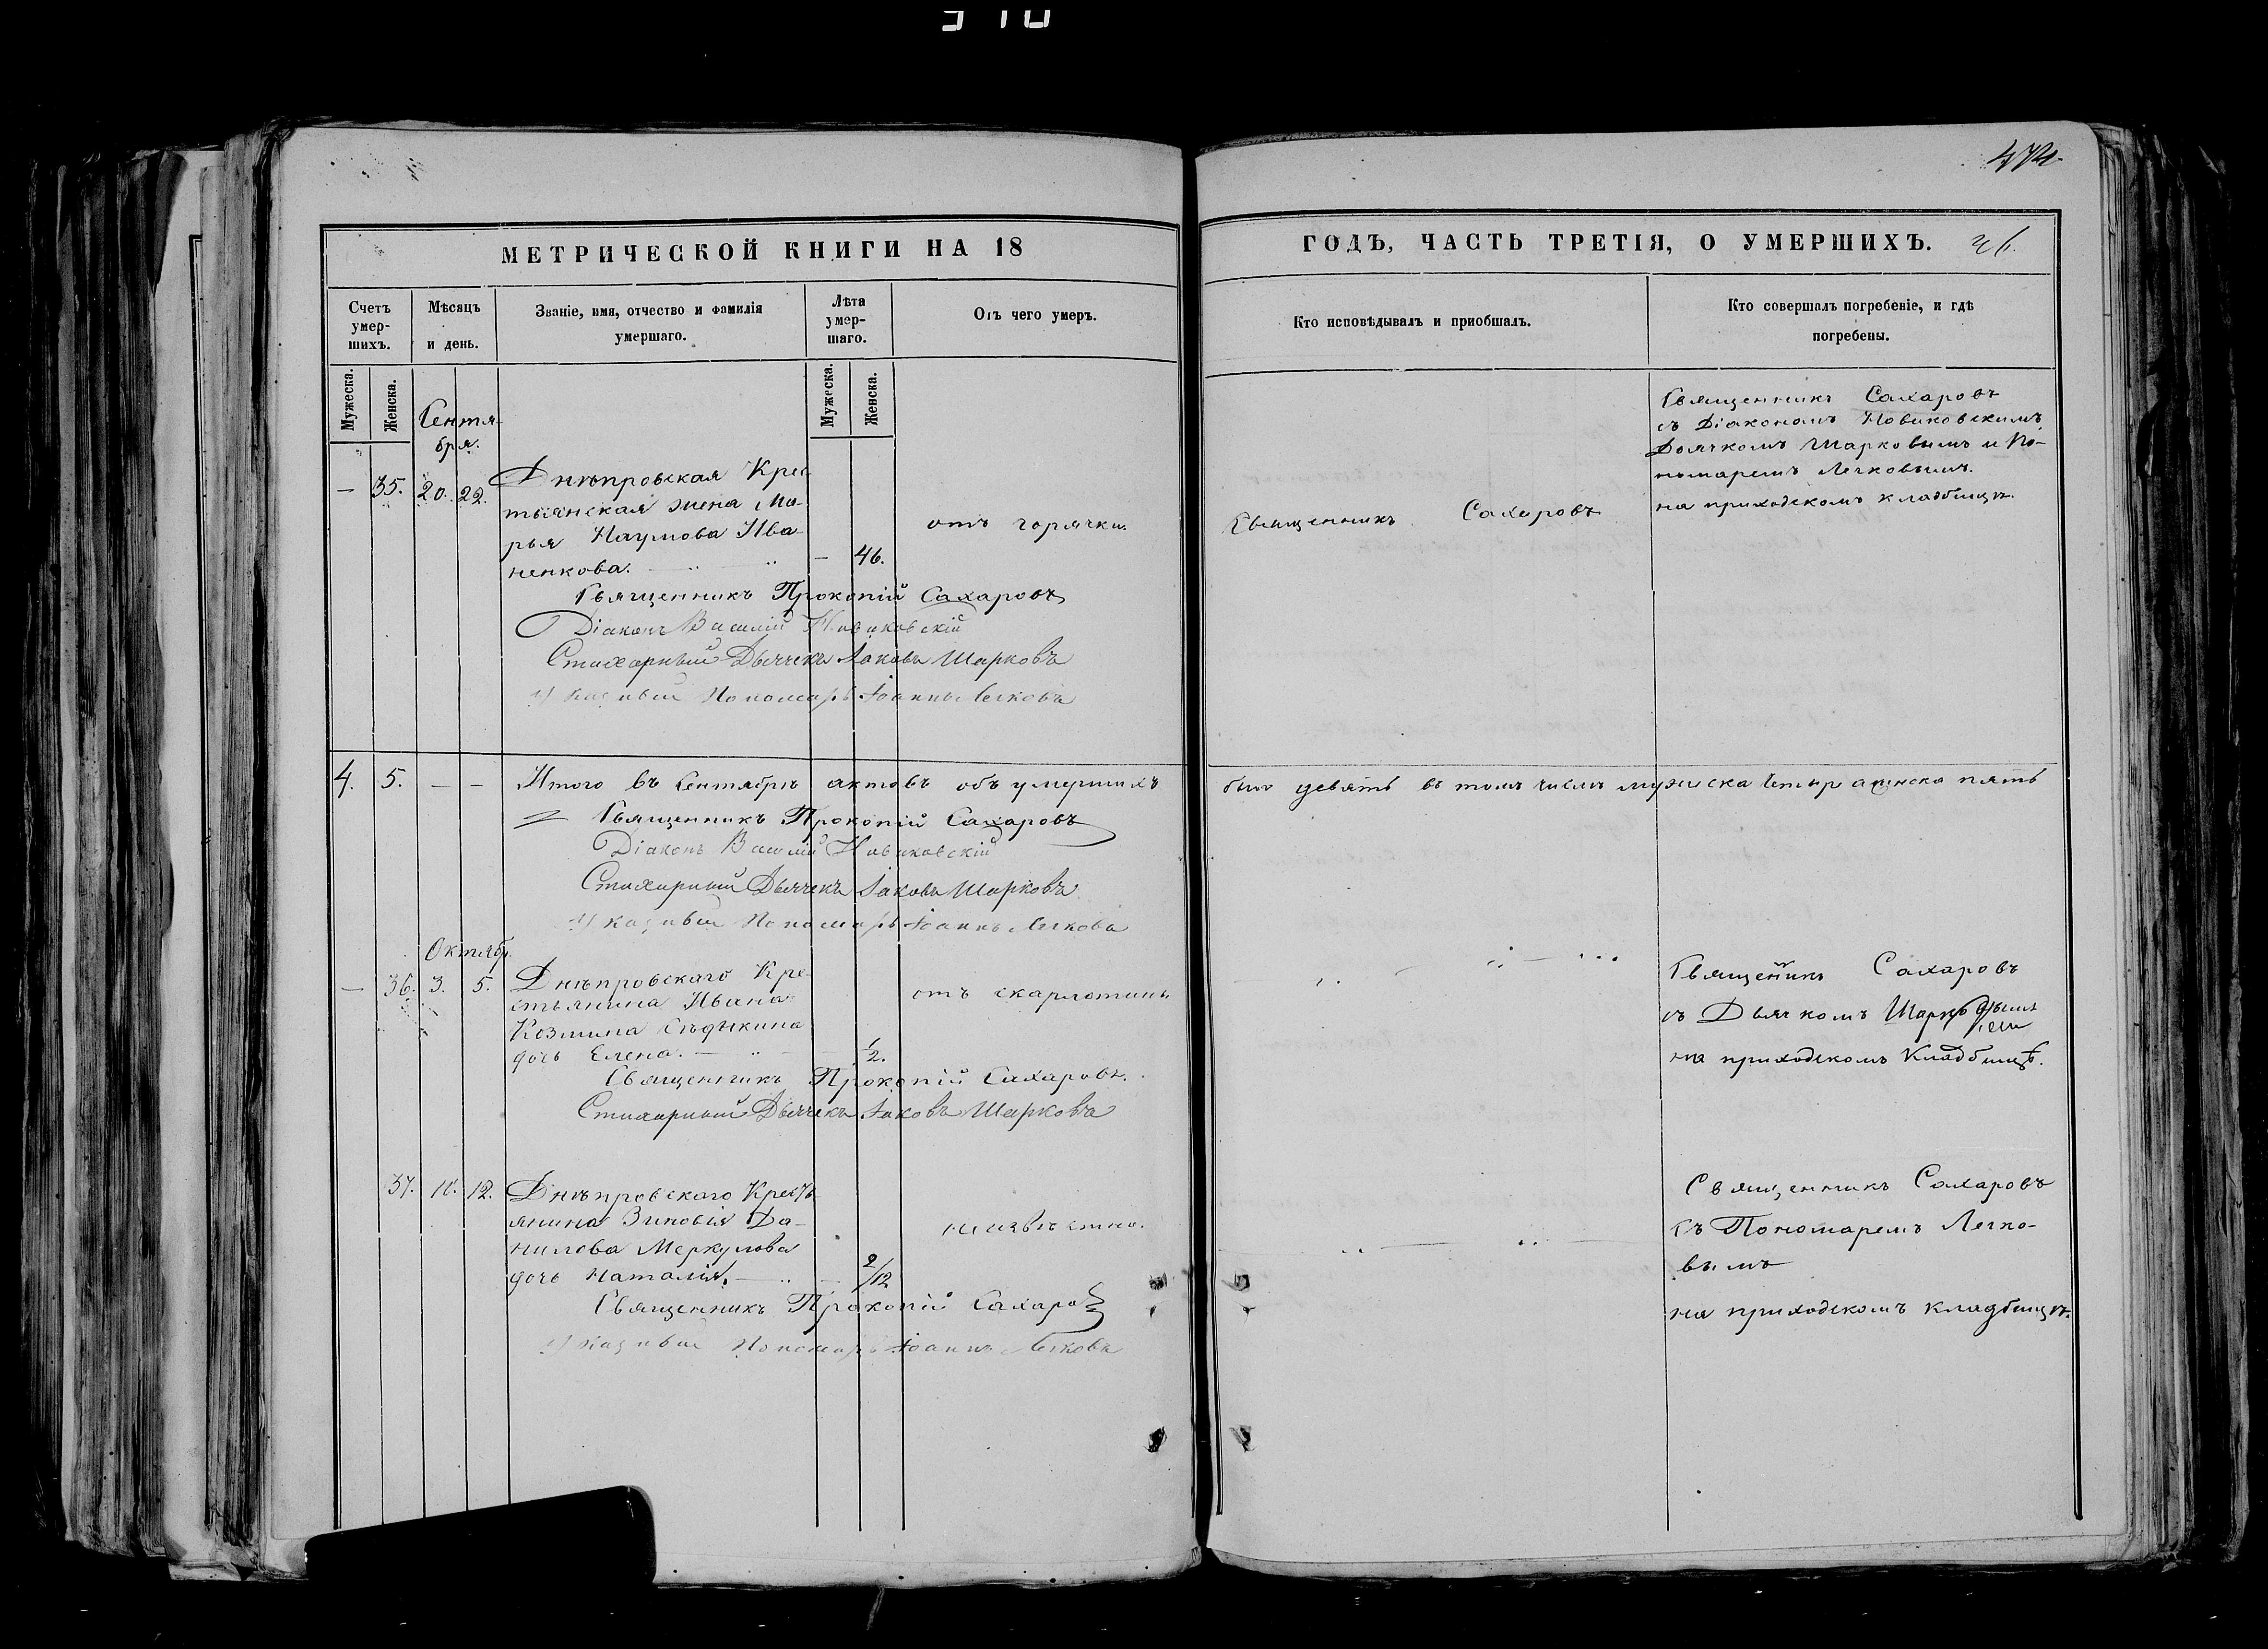 474.
МЕТРИЧЕСКОЙ КНИГИ НА 18
Счетъ умер-шихъ.
Мѣсяцъ и день.
Званіе, имя, отчество и фамилія умершаго.
Лѣта умер-шаго.
Отъ чего умеръ.
Мужеска.
Женска.
Мужеска.
Женска.
Сентя-
бря.
— 35. 20. 22.
Днѣпровская Крес
тьянская жена Ма-
рья Наумова Ива-
ненкова. — 46.
отъ горячки.
Священникъ Прокопій Сахаровъ
Діаконъ Василій Новиковскій
Стихарный Дьячекъ Іаковъ Шарковъ
Указный Пономарь Іоаннъ Легковъ
4. 5. — — Итого въ Сентябрѣ актовъ объ умершихъ
Священникъ Прокопій Сахаровъ
Діаконъ Василій Новиковскій
Стихарный Дьячекъ Іаковъ Шарковъ
Указный Пономарь Іоаннъ Легковъ
Октябр.
— 36. 3. 5.
Днѣпровскаго Кре-
стьянина Ивана
Козмина
дочь Елена. — 1/2.
отъ скарлотины
Священникъ Прокопій Сахаровъ.
Стихарный Дьячекъ Іаковъ Шарковъ
37. 12.
Днѣпровскаго Кресть
янина Зиновія Да-
нилова Меркулова
дочь Наталія. — 2/12
неизвѣстно.
Священникъ Прокопій Сахаровъ
Указный Пономарь Іоаннъ Легковъ
ГОДЪ, ЧАСТЬ ТРЕТІЯ, О УМЕРШИХЪ.
Кто исповѣдывалъ и пріобщалъ.
Кто совершалъ погребеніе, и гдѣ погребены.
Священникъ Сахаровъ
Священникъ Сахаровъ
съ Діакономъ Новиковскимъ
Дьячкомъ Шарковымъ и По-
номаремъ Легковымъ.
на приходскомъ кладбищѣ.
было девять въ томъ числѣ мужеска четыре женска пять
Священникъ Сахаровъ
съ Дьячкомъ Шарковымъ
на приходскомъ Кладбищѣ.
Священникъ Сахаровъ
съ Пономаремъ Легко-
вымъ
на приходскомъ кладбищѣ.